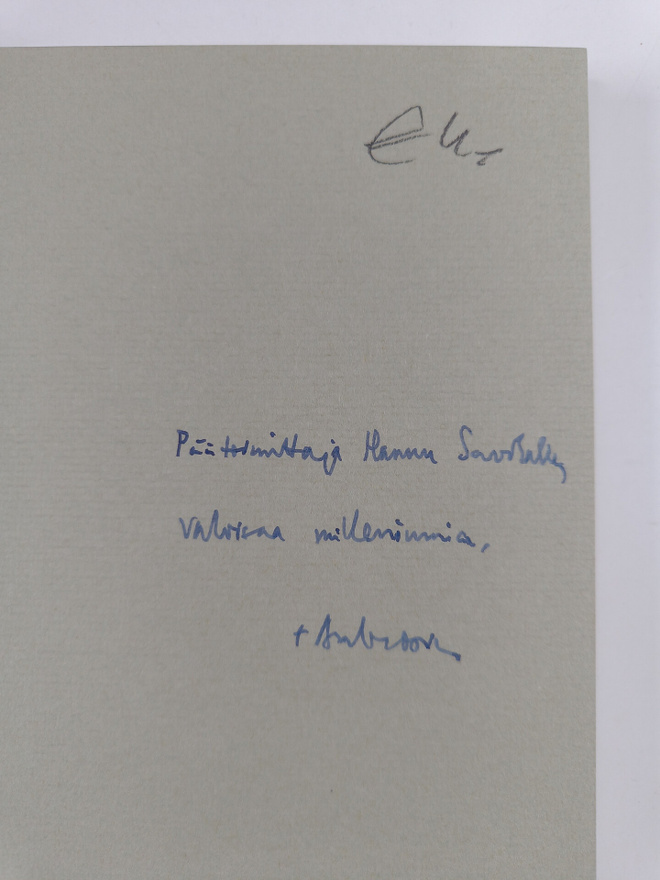 Päätoimittaja Hannu Savolalle,
valoisaa milleniumia,
+ Ambrosius